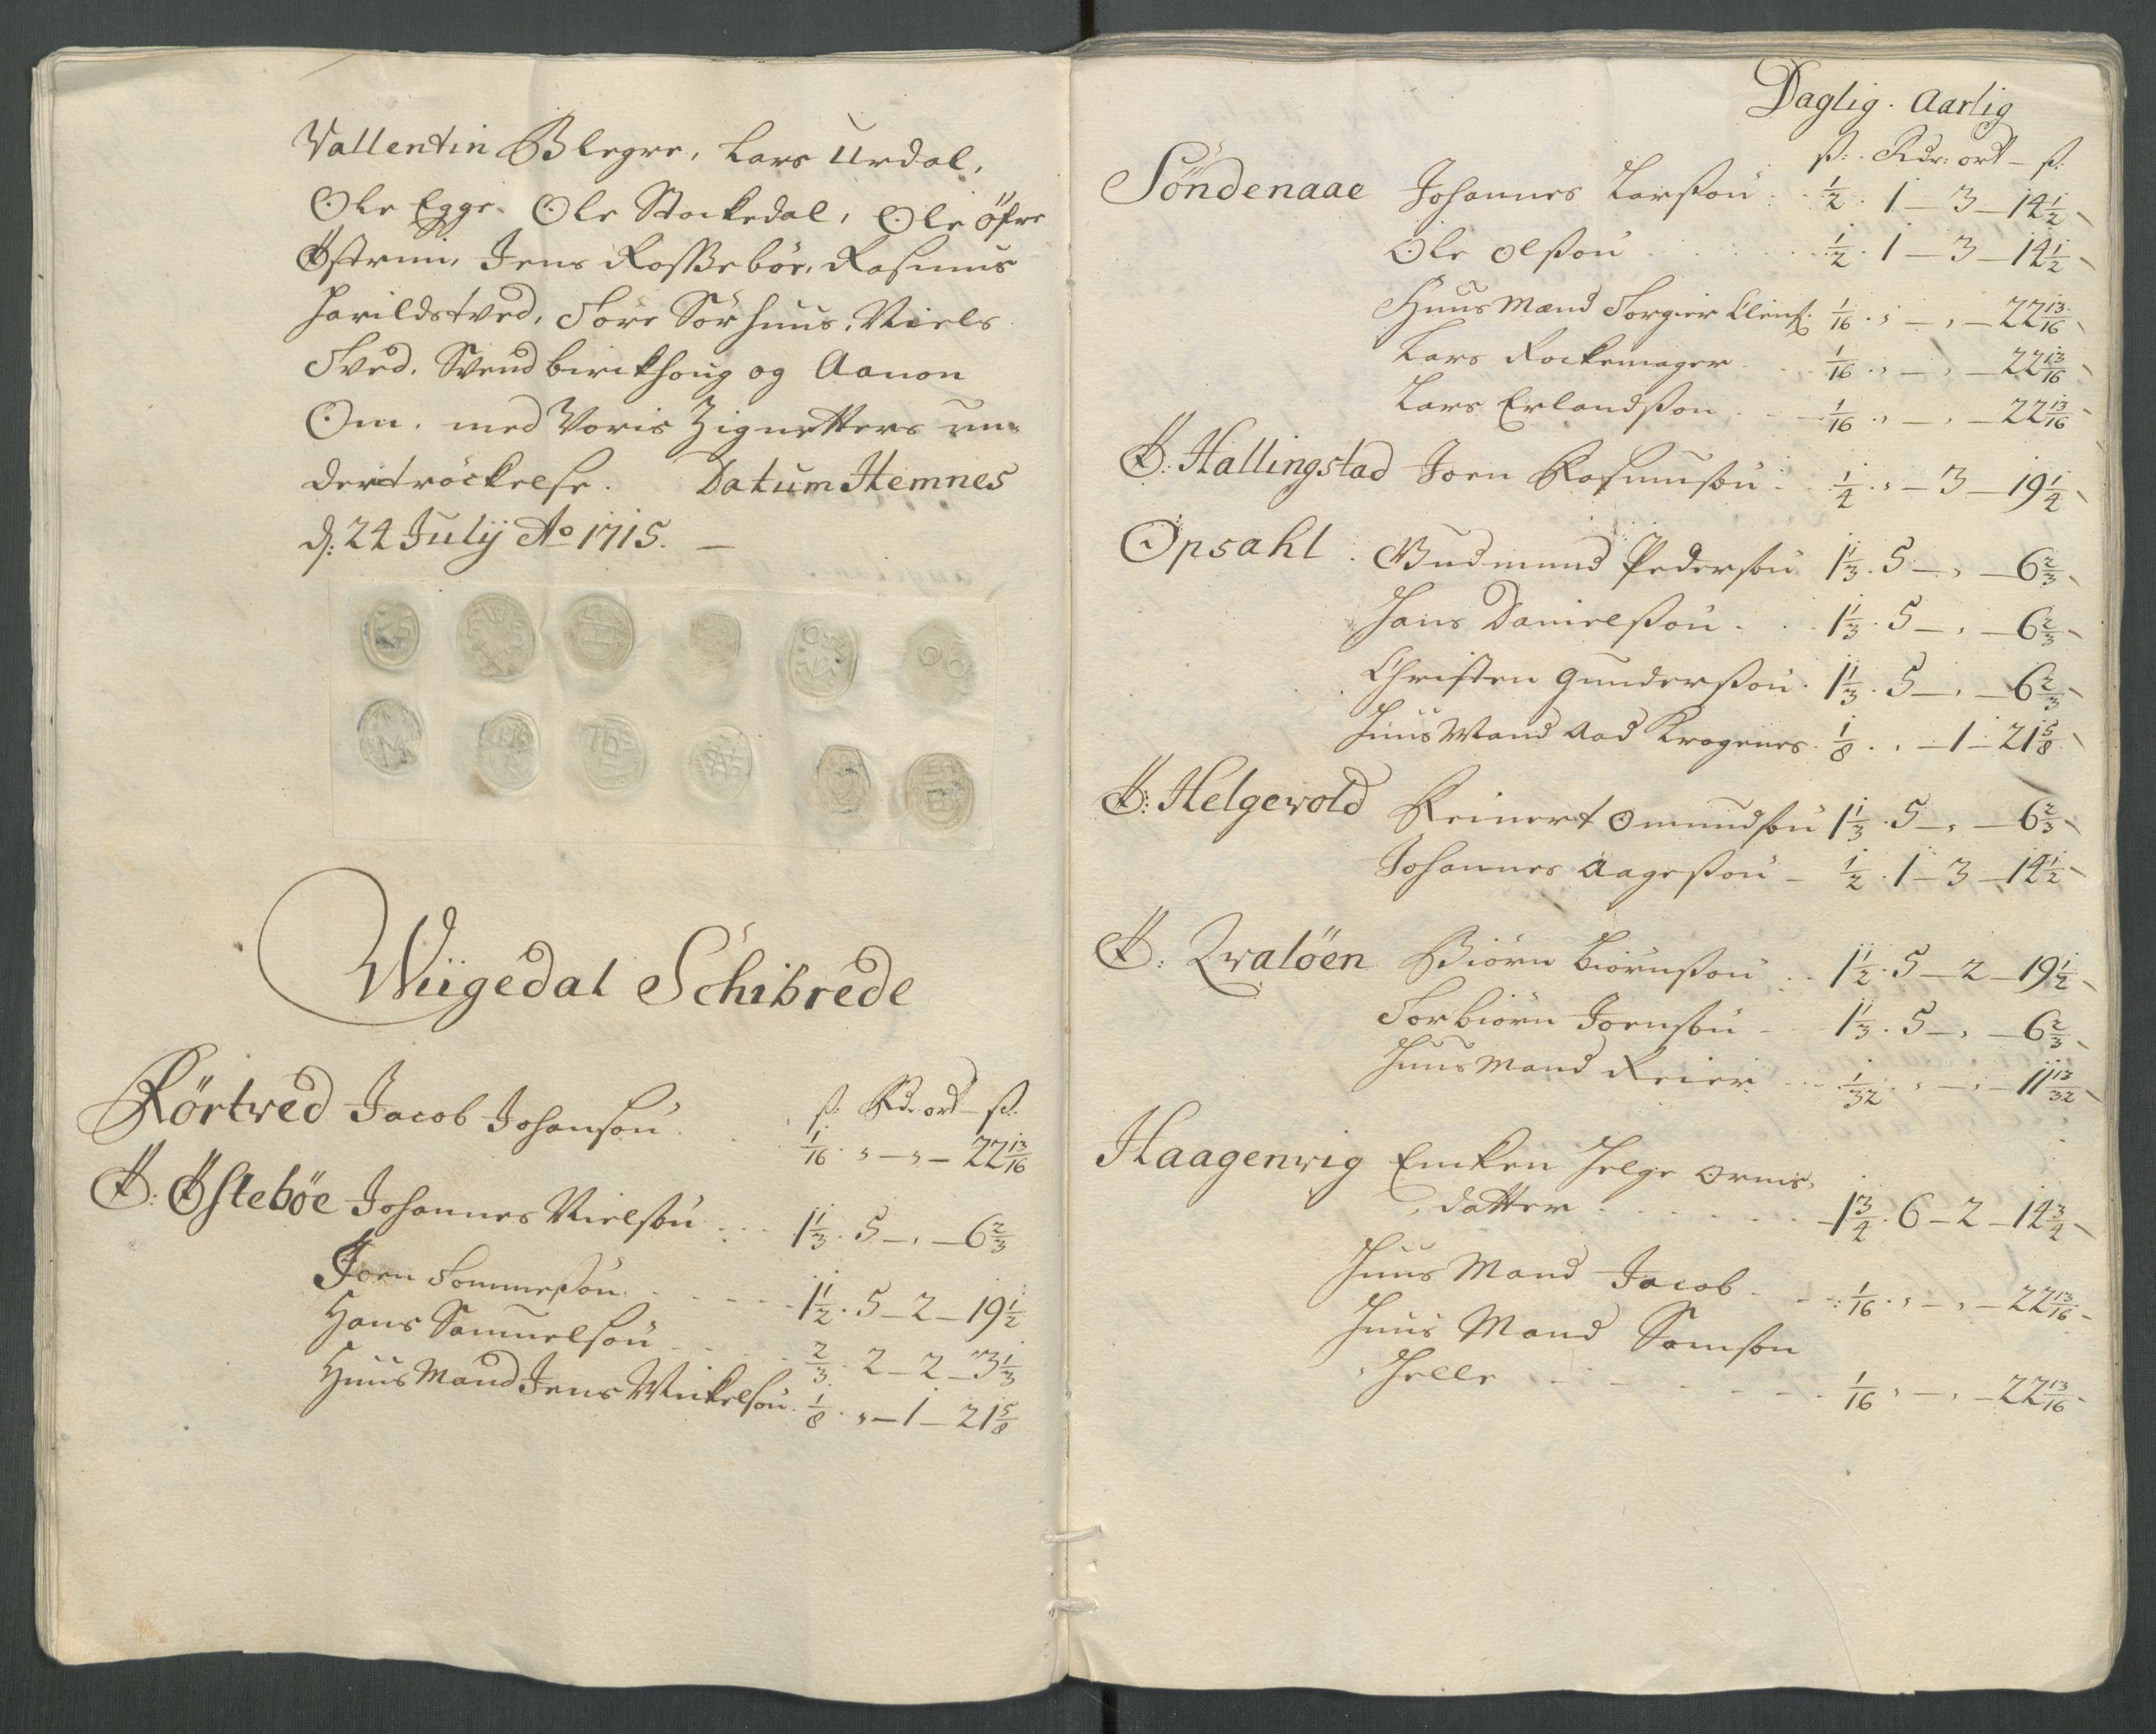 Vallentin Blegre, Lars Urdal,
Ole Egge. Ole Stockedal, Ole öfre
Østrim, Jens Rosseböe, Rasmus
Harildstved, Tore Sörhuus, Niels
Tved, Svend birckhoug og Aanon
Om, med Voris Zignetters un-
dertröckelse. Datum Hemnes
d: 24 Julij Ao 1715. —
Wiigedal Schibrede
ß: Rdr ort – ß:
Rörtved Jacob Johansøn 1/16 · „ – „ – 22 13/16
Ø: Østebøe Johannes Nielsøn 1 1/3 · 5 – „ – 6 2/3
Joen Tommeßøn 1 1/2 · 5 – 2 – 19 1/2
Hans Samuelsøn 2/3 · 2 – 2 – 3 1/3
Huus Mand Jens Mickelsøn 1/8 · „ – 1 – 21 5/8
Daglig. Aarlig
ß: Rdr: ort – ß:
Söndenaae Johannes Larßøn 1/2 · 1 – 3 – 14 1/2
Ole Olßøn 1/2 · 1 – 3 – 14 1/2
Huus Mand Torgier 1/16 · „ – „ – 22 13/16
Lars Rockemager 1/16 · „ – „ – 22 13/16
Lars Erlandßøn 1/16 · „ – „ – 22 13/16
Ø: Hallingstad Joen Rasmusøn 1/4 · „ – 3 – 19 1/4
Opsahl Gudmund Pedersøn 1 1/3 · 5 – „ – 6 2/3
Hans Danielßøn 1 1/3 · 5 – „ – 6 2/3
Christen Gunderßøn 1 1/3 · 5 – „ – 6 2/3
Huus Mand Aad Kragenes 1/8 · „ – 1 – 21 5/8
Ø: Helgevold Reinert Omundsøn 1 1/3 · 5 – „ – 6 2/3
Johannes Aageßøn 1/2 · 1 – 3 – 14 1/2
Ø: Qvaløen Biörn Biörnßøn 1 1/2 · 5 – 2 – 19 1/2
Torbiörn Joensøn 1 1/3 · 5 – „ – 6 2/3
Huus Mand Reier 1/32 · „ – „ – 11 13/32
Haagenvig Encken Helge Orms-
datter 1 3/4 · 6 – 2 – 14 3/4
Huus Mand Jacob 1/16 · „ – „ – 22 13/16
Huus Mand Samson
Helle 1/16 · „ – „ – 22 13/16